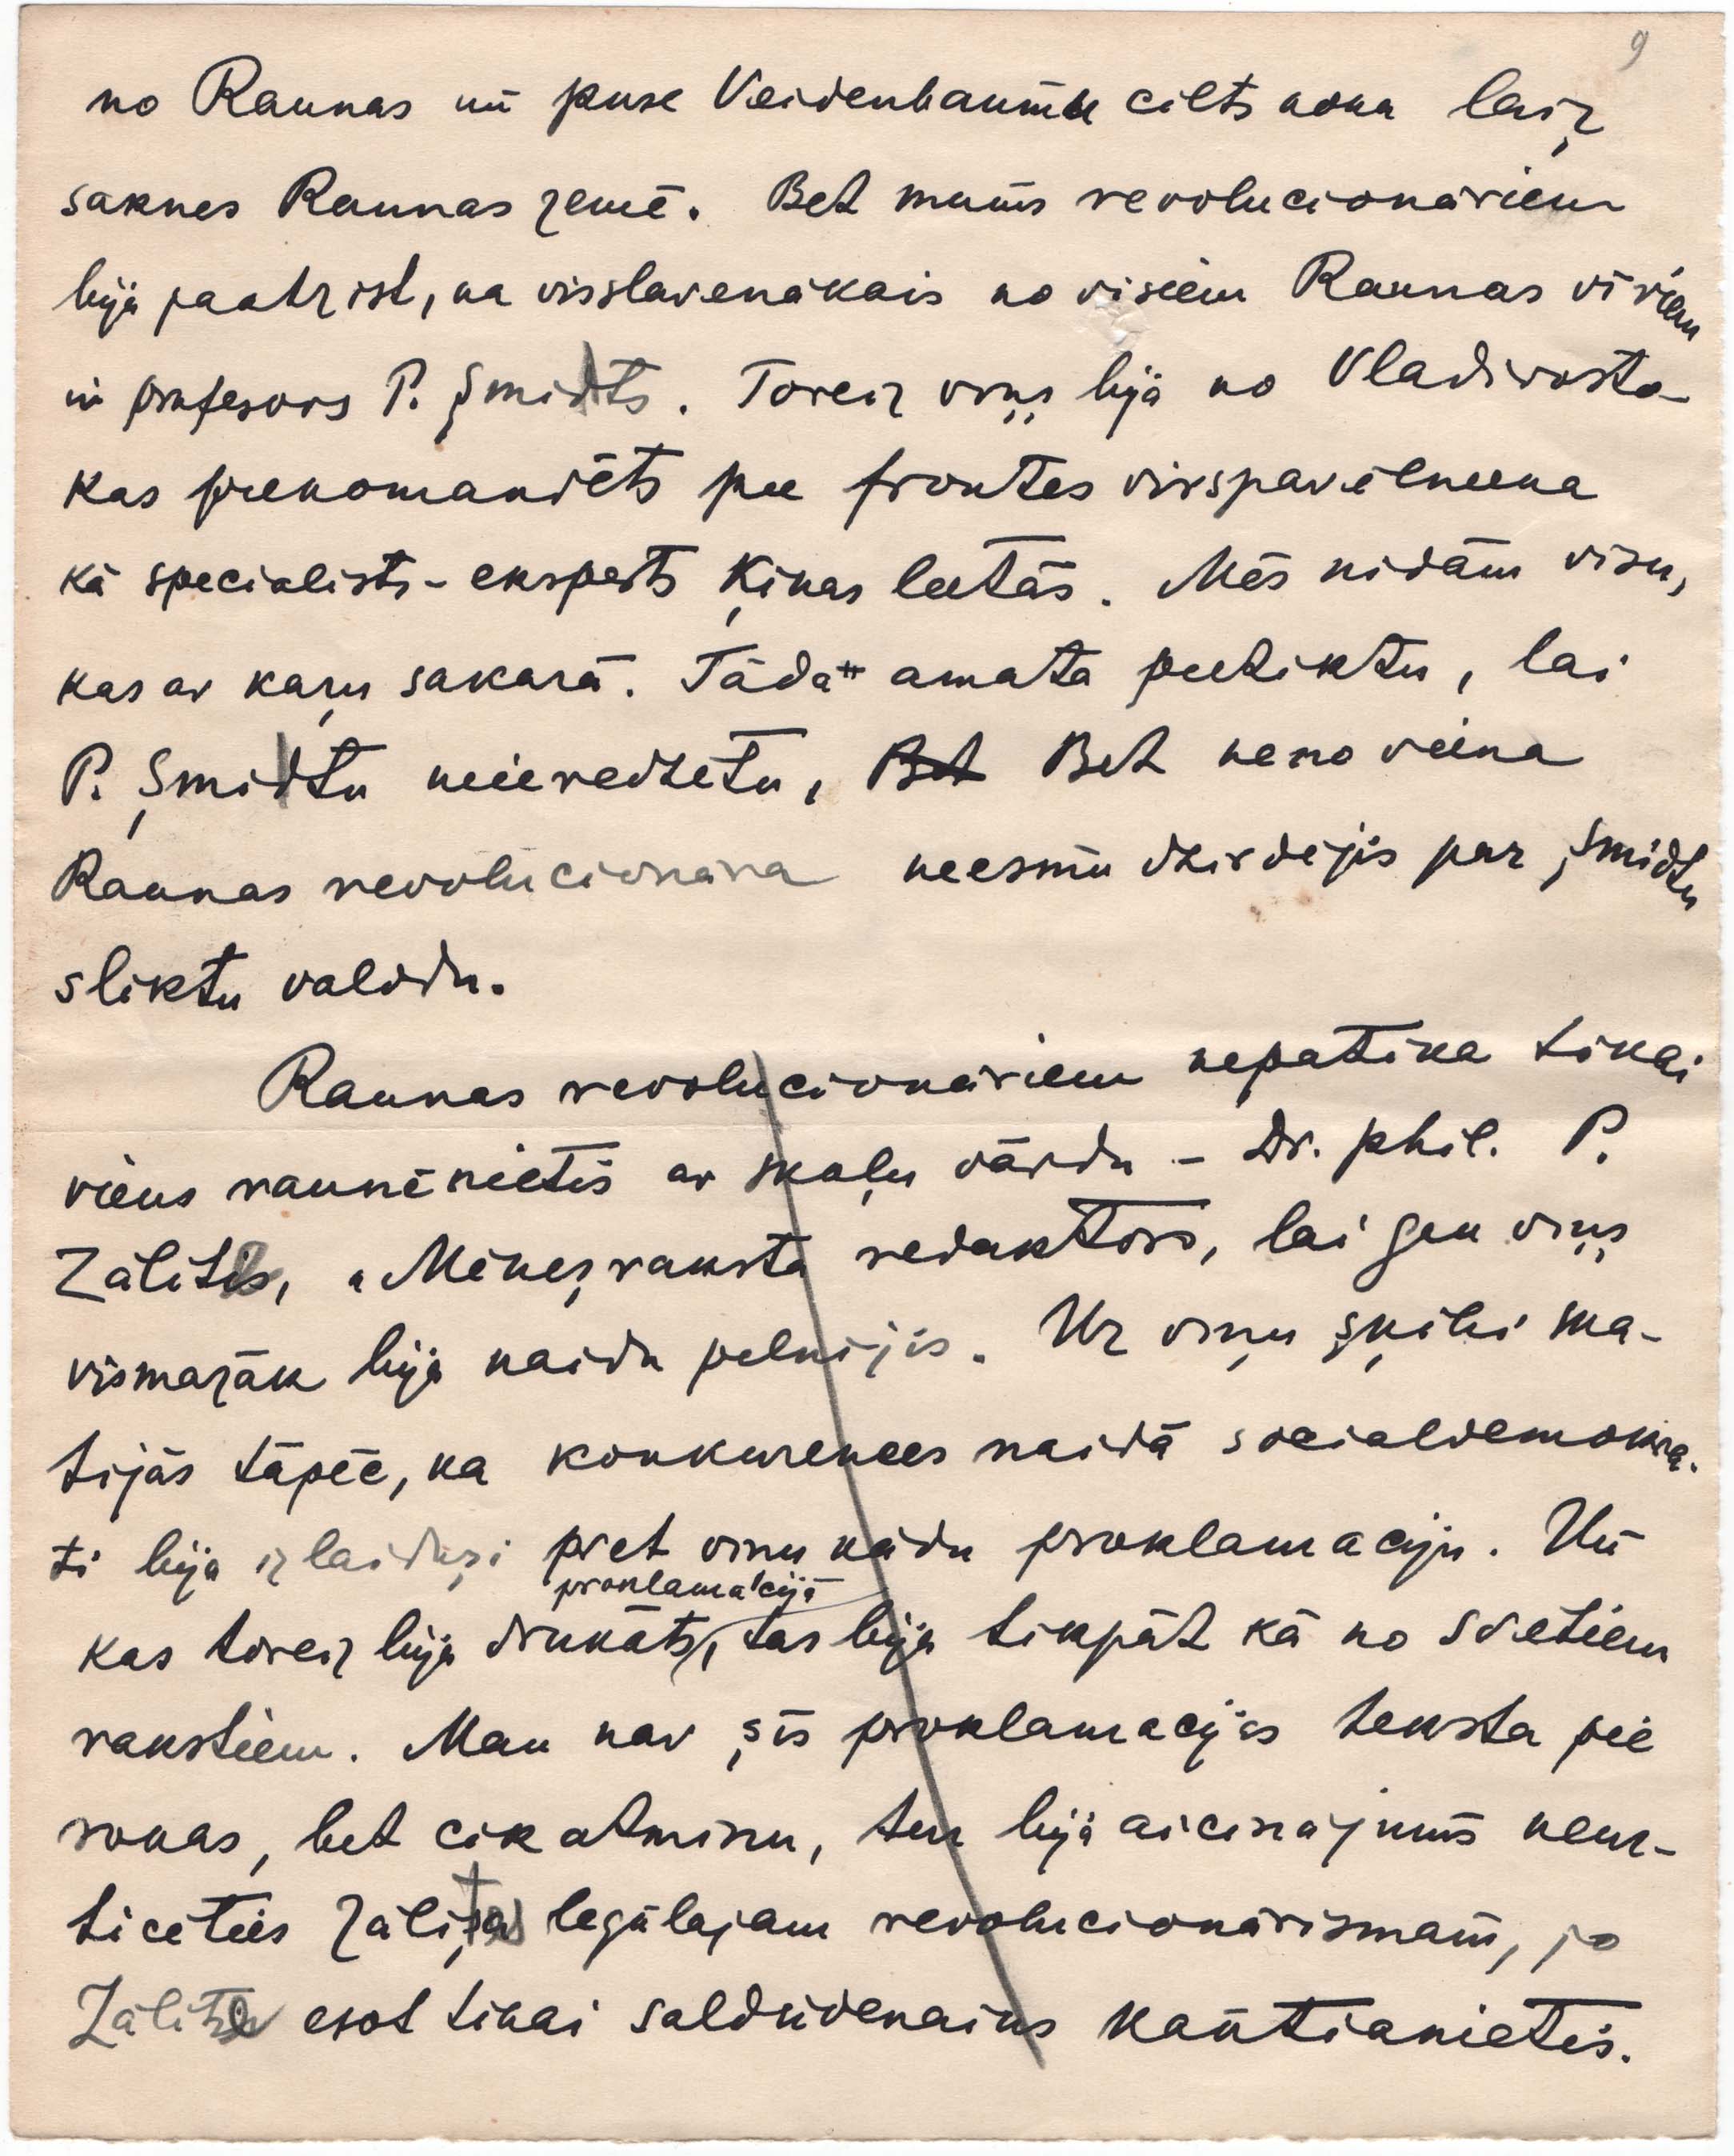 9
no Raunas un puse Veidenbaumu cilts koka laiž
saknes Raunas zemē. Bet mums revolucionāriem
bija jaatzīst, ka visslavenākais no visiem Raunas vīriem
ir profesors P. Šmidts. Toreiz viņš bija no Vladivosto-
kas piekomandēts pie frontes virspavēlneeka
kā speciālists-eksperts Ķīnas lietās. Mēs nīdām visu,
kas ar kaŗu sakarā. Tāda amata pietiktu, lai
P. Šmidtu neieredzētu, Bet Bet neno viena
Raunas revolucionāra neesmu dzirdējis par Šmidtu
sliktu valodu.
Raunas revolucionāriem nepatika tikai
viens raunēnietis ar skaļu vārdu – Dr. phil. P.
Zālītis, „Mēnešraksta redaktors, lai gan viņš
vismazāk bija naidu pelnijis. Uz viņu šķībi ska-
tijās tāpēc, ka konkurences naidā socialdemokra-
ti bija izlaiduši pret viņu kādu proklamaciju. Un
proklamācijā
kas toreiz bija drukāts, tas bija tikpāt kā no svētiem
rakstiem. Man nav šīs proklamacijas teksta pie
rokas, bet cik atminu, tur bija aicinājums neuz-
ticēties Zālīša legālajam revolucionārismam, jo
Zālīte esot tikai saldūdenains kantianietis.